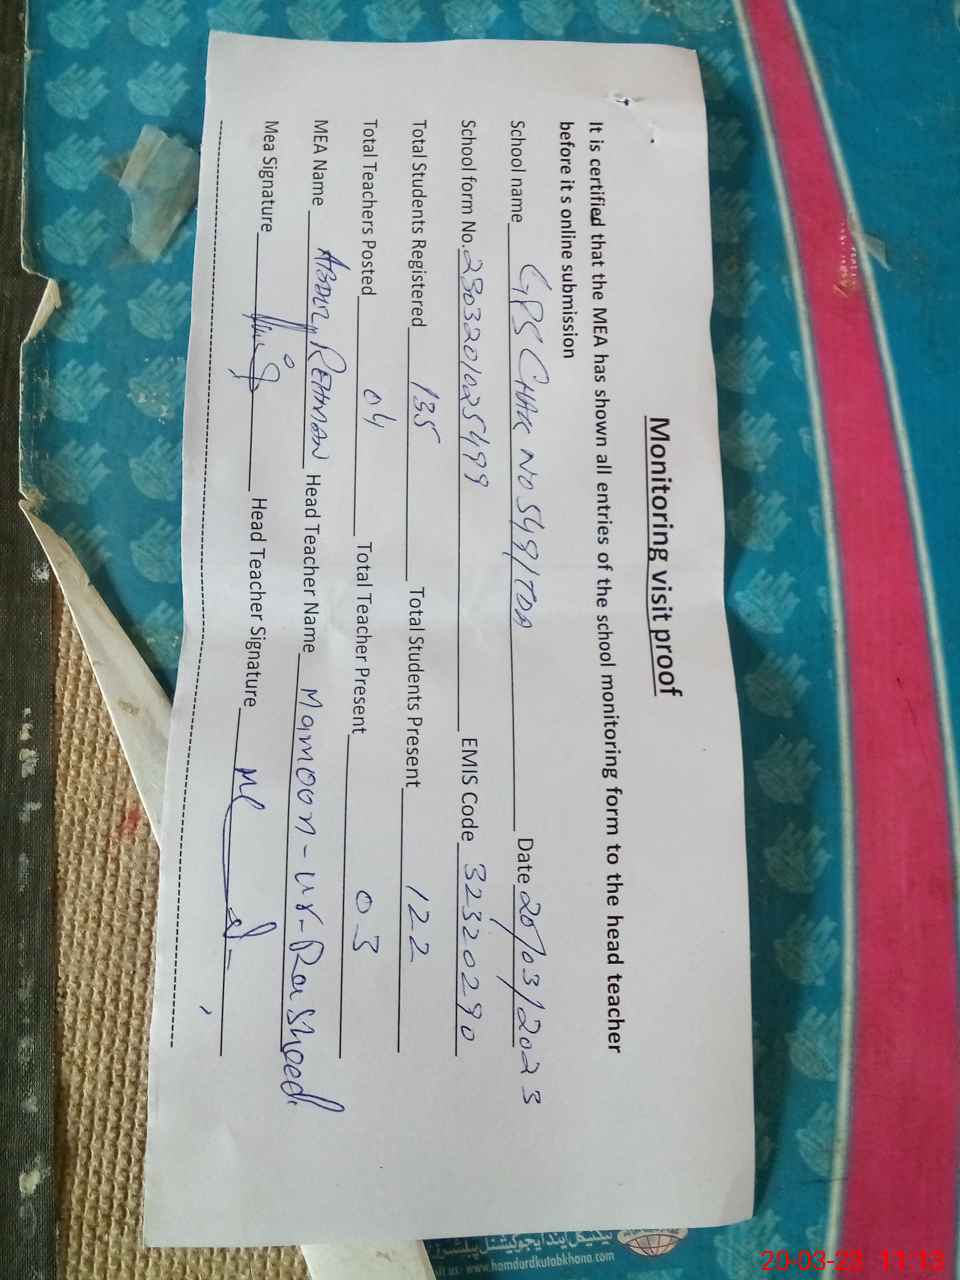 Monitoring visit proof
It is certified that the MEA has shown all entries of the school monitoring form to the head teacher
before it s online submission
School name GPS CHAK NO 549/TDA Date 20/03/2023
School form No. 2303201025499 EMIS Code 32320290
Total Students Registered 135 Total Students Present 122
Total Teachers Posted 04 Total Teacher Present 03
MEA Name ABDUL REHMAN Head Teacher Name Mamoon-ur-Rasheed
Mea Signature Head Teacher Signature
www.hamdardkutabkhana.com
20-03-23 11:13